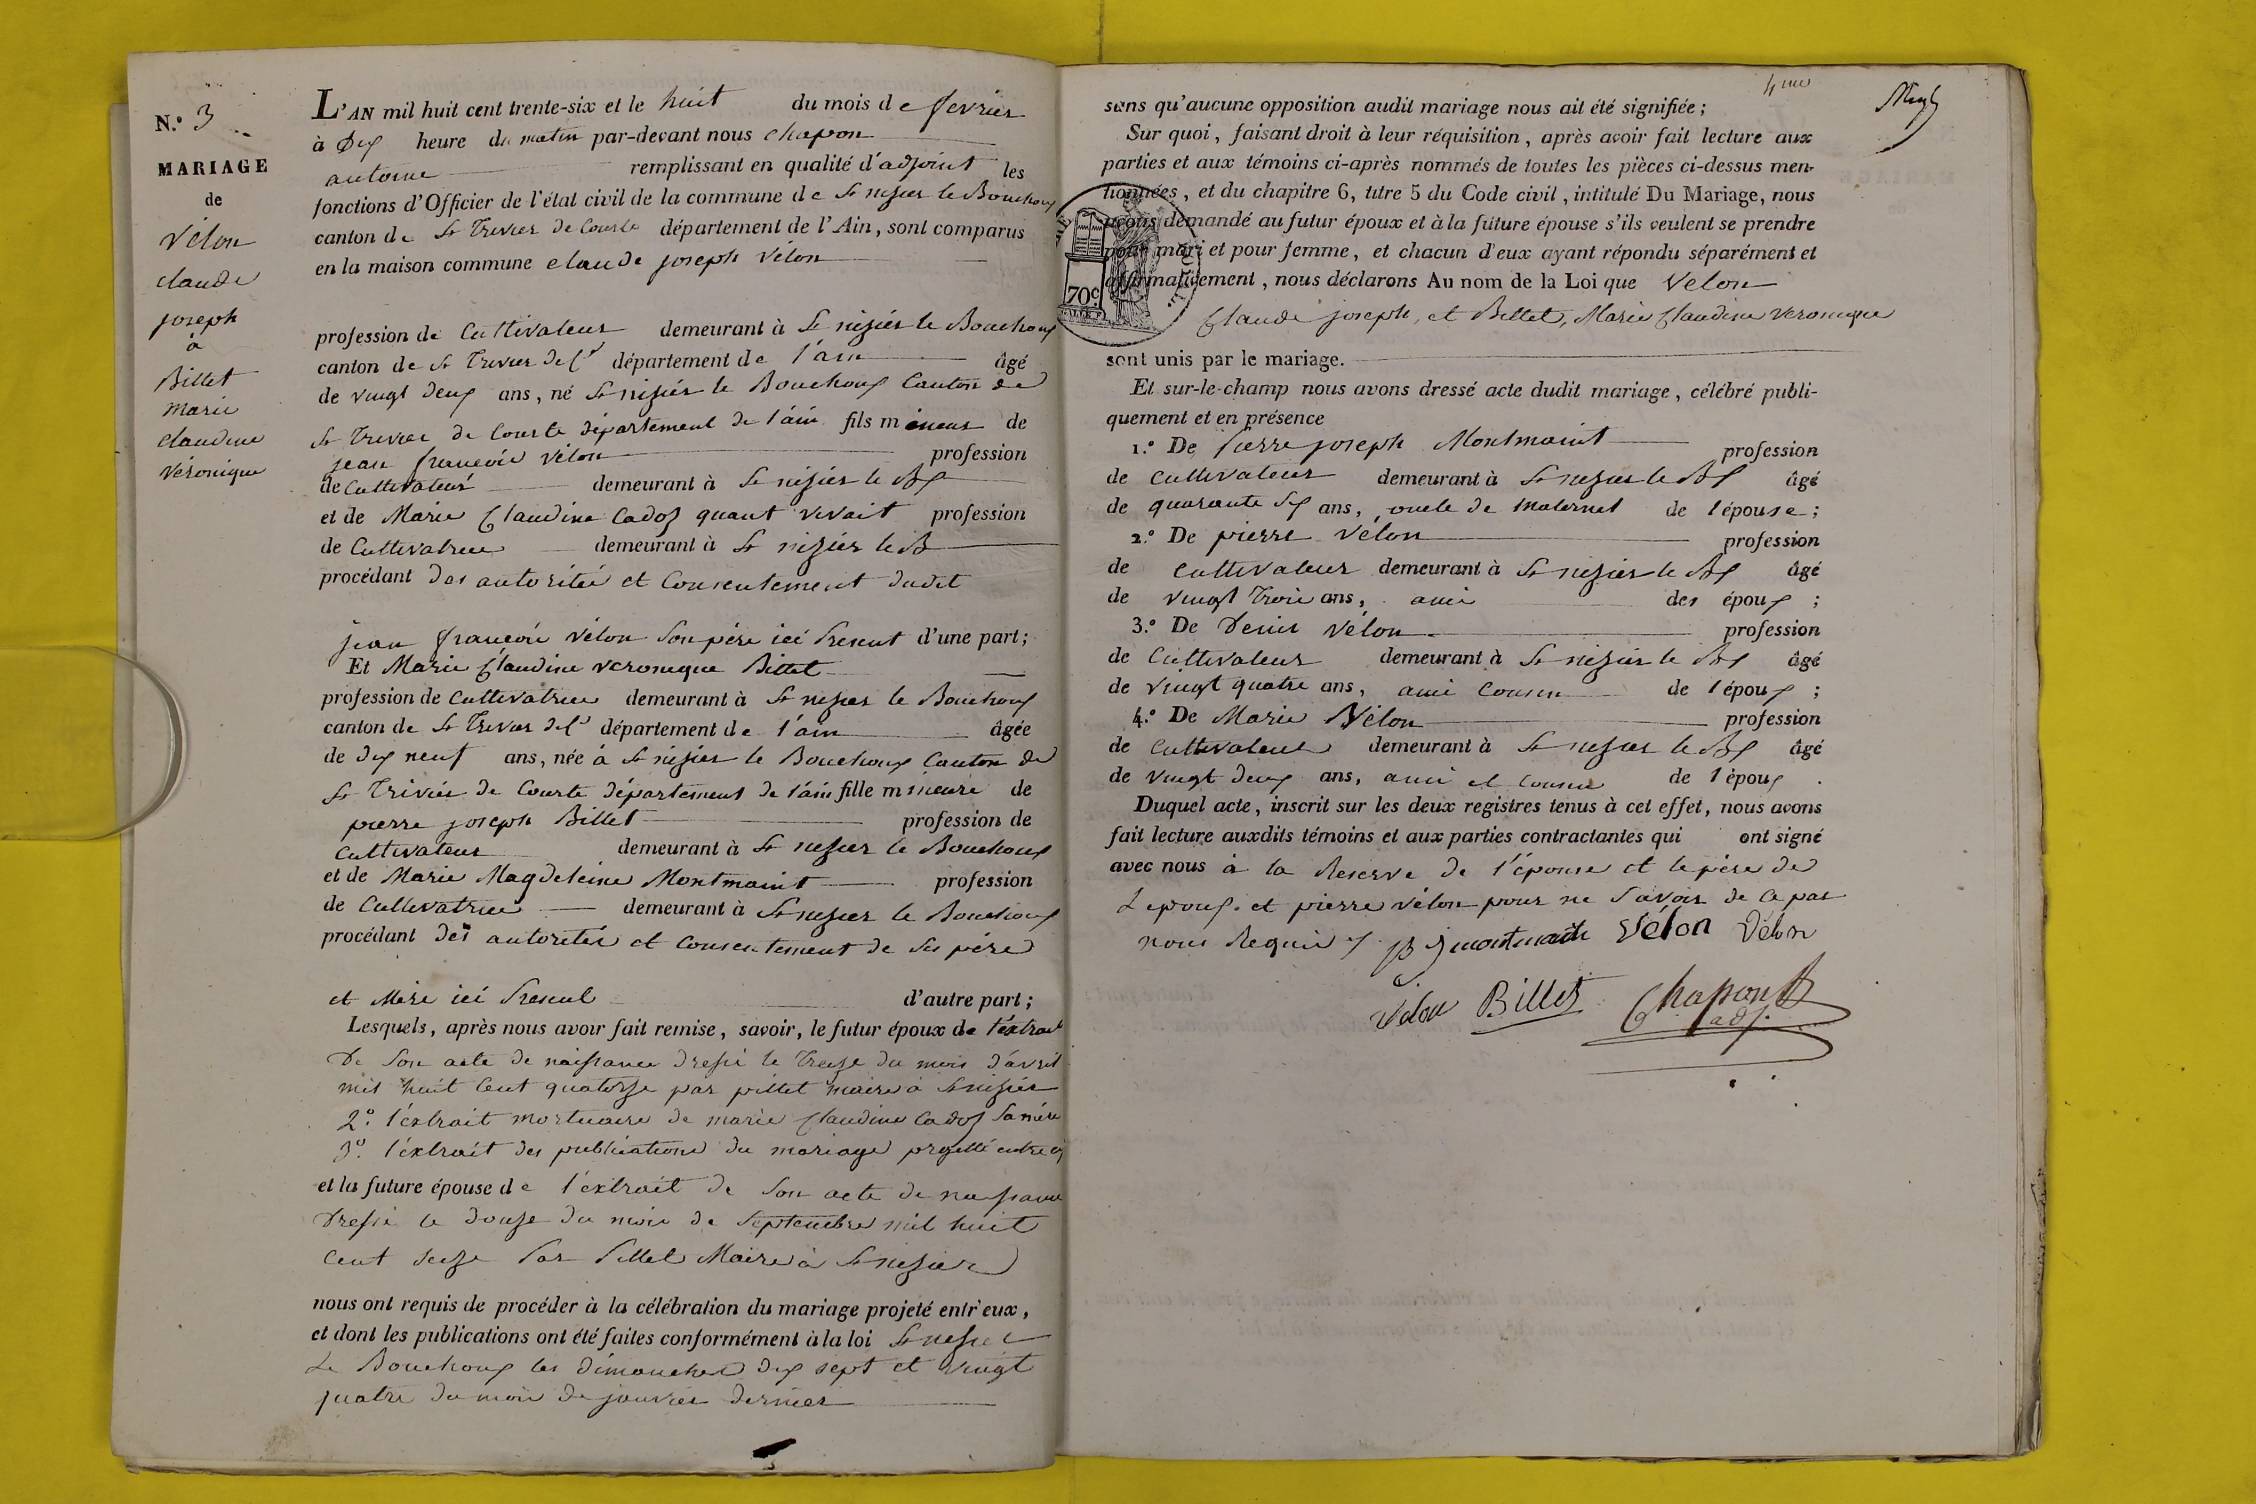 N.º 3
MARIAGE
de
Vélon
claude
joseph
à
Billet
marie
claudine
véronique
L'AN mil huit cent trente-six et le huit du mois de fevrier
à Dix heure du matin par-devant nous chapon
antoine remplissant en qualité d'adjoint les
fonctions d'Officier de l'état civil de la commune de St nizier le Bouchoux
canton de St Trivier de Courte département de l'Ain, sont comparus
en la maison commune claude joseph Vélon
profession de Cultivateur demeurant à St nizier le Bouchoux
canton de St Trivier de Cr département de l'ain âgé
de vingt deux ans, né St nizier le Bouchoux Canton de
St Trivier de Courte département de l'ain fils mineur de
jean françois vélon profession
de Cultivateur demeurant à St nizier le Bx
et de Marie Claudine Cadoz quant vivait profession
de Cultivatrice demeurant à St nizier le B
procédant des autorité et Consentement dudit
jean françois vélon Son père ici Present d'une part;
Et Marie Claudine veronique Billet
profession de Cultivatrice demeurant à St nizier le Bouchoux
canton de St Trivier de Cr département de l'ain âgée
de dix neuf ans, née à St nizier le Bouchoux Canton de
St Trivier de Courte département de l'ain fille mineure de
pierre joseph Billet profession de
Cultivateur demeurant à St nizier le Bouchoux
et de Marie Magdeleine Montmaint profession
de Cultivatrice demeurant à St nizier le Bouchoux
procédant des autorités et Consentement de Ses père
et Mère ici Present d'autre part;
Lesquels, après nous avoir fait remise, savoir, le futur époux de l'extrait
De Son acte de naissance dressé le Treize du mois d'avril
mil huit Cent quatorze par pillet maire à St nizier
2º. l'éxtrait mortuaire de marie Claudine Cadoz Sa mère
3º. l'éxtrait des publications du mariage projetté entre
et la future épouse de l'éxtrait de Son acte de naissance
Dressé le douze du mois de Septembre mil huit
Cent Seize Par Pillet Maire à St nizier
nous ont requis de procéder à la célébration du mariage projeté entr'eux,
et dont les publications ont été faites conformément à la loi St nizier
Le Bouchoux les dimanches dix sept et vingt
quatre du mois de janvier dernier
4me
sans qu'aucune opposition audit mariage nous ait été signifiée;
Sur quoi, faisant droit à leur réquisition, après avoir fait lecture aux
parties et aux témoins ci-après nommés de toutes les pièces ci-dessus men-
tionnées, et du chapitre 6, titre 5 du Code civil, intitulé Du Mariage, nous
avons demandé au futur époux et à la future épouse s'ils veulent se prendre
pour mari et pour femme, et chacun d'eux ayant répondu séparément et
affirmativement, nous déclarons Au nom de la Loi que Vélon
Claude joseph, et Billet, Marie Claudine Veronique
sont unis par le mariage.
70c
Et sur-le-champ nous avons dressé acte dudit mariage, célébré publi-
quement et en présence
1.º De Pierre joseph Montmaint profession
de Cultivateur demeurant à St nizier le Bx âgé
de quarante Six ans, oncle de Maternel de l'épouse;
2.º De pierre Vélon profession
de Cultivateur demeurant à St nizier le Bx âgé
de vingt Trois ans, ami des époux;
3.º De Denis Vélon profession
de Cultivateur demeurant à St nizier le Bx âgé
de vingt quatre ans, ami Cousin de l'époux;
4.º De Marie Vélon profession
de Cultivateur demeurant à St nizier le Bx âgé
de vingt deux ans, ami et Cousin de l'époux.
Duquel acte, inscrit sur les deux registres tenus à cet effet, nous avons
fait lecture auxdits témoins et aux parties contractantes qui ont signé
avec nous à la Reserve de l'épouse et le père de
L'epoux. et pierre vélon pour ne Savoir de ce par
nous Requis Montmaint Vélon Vélon
Vélon Billet Chapon
adj.